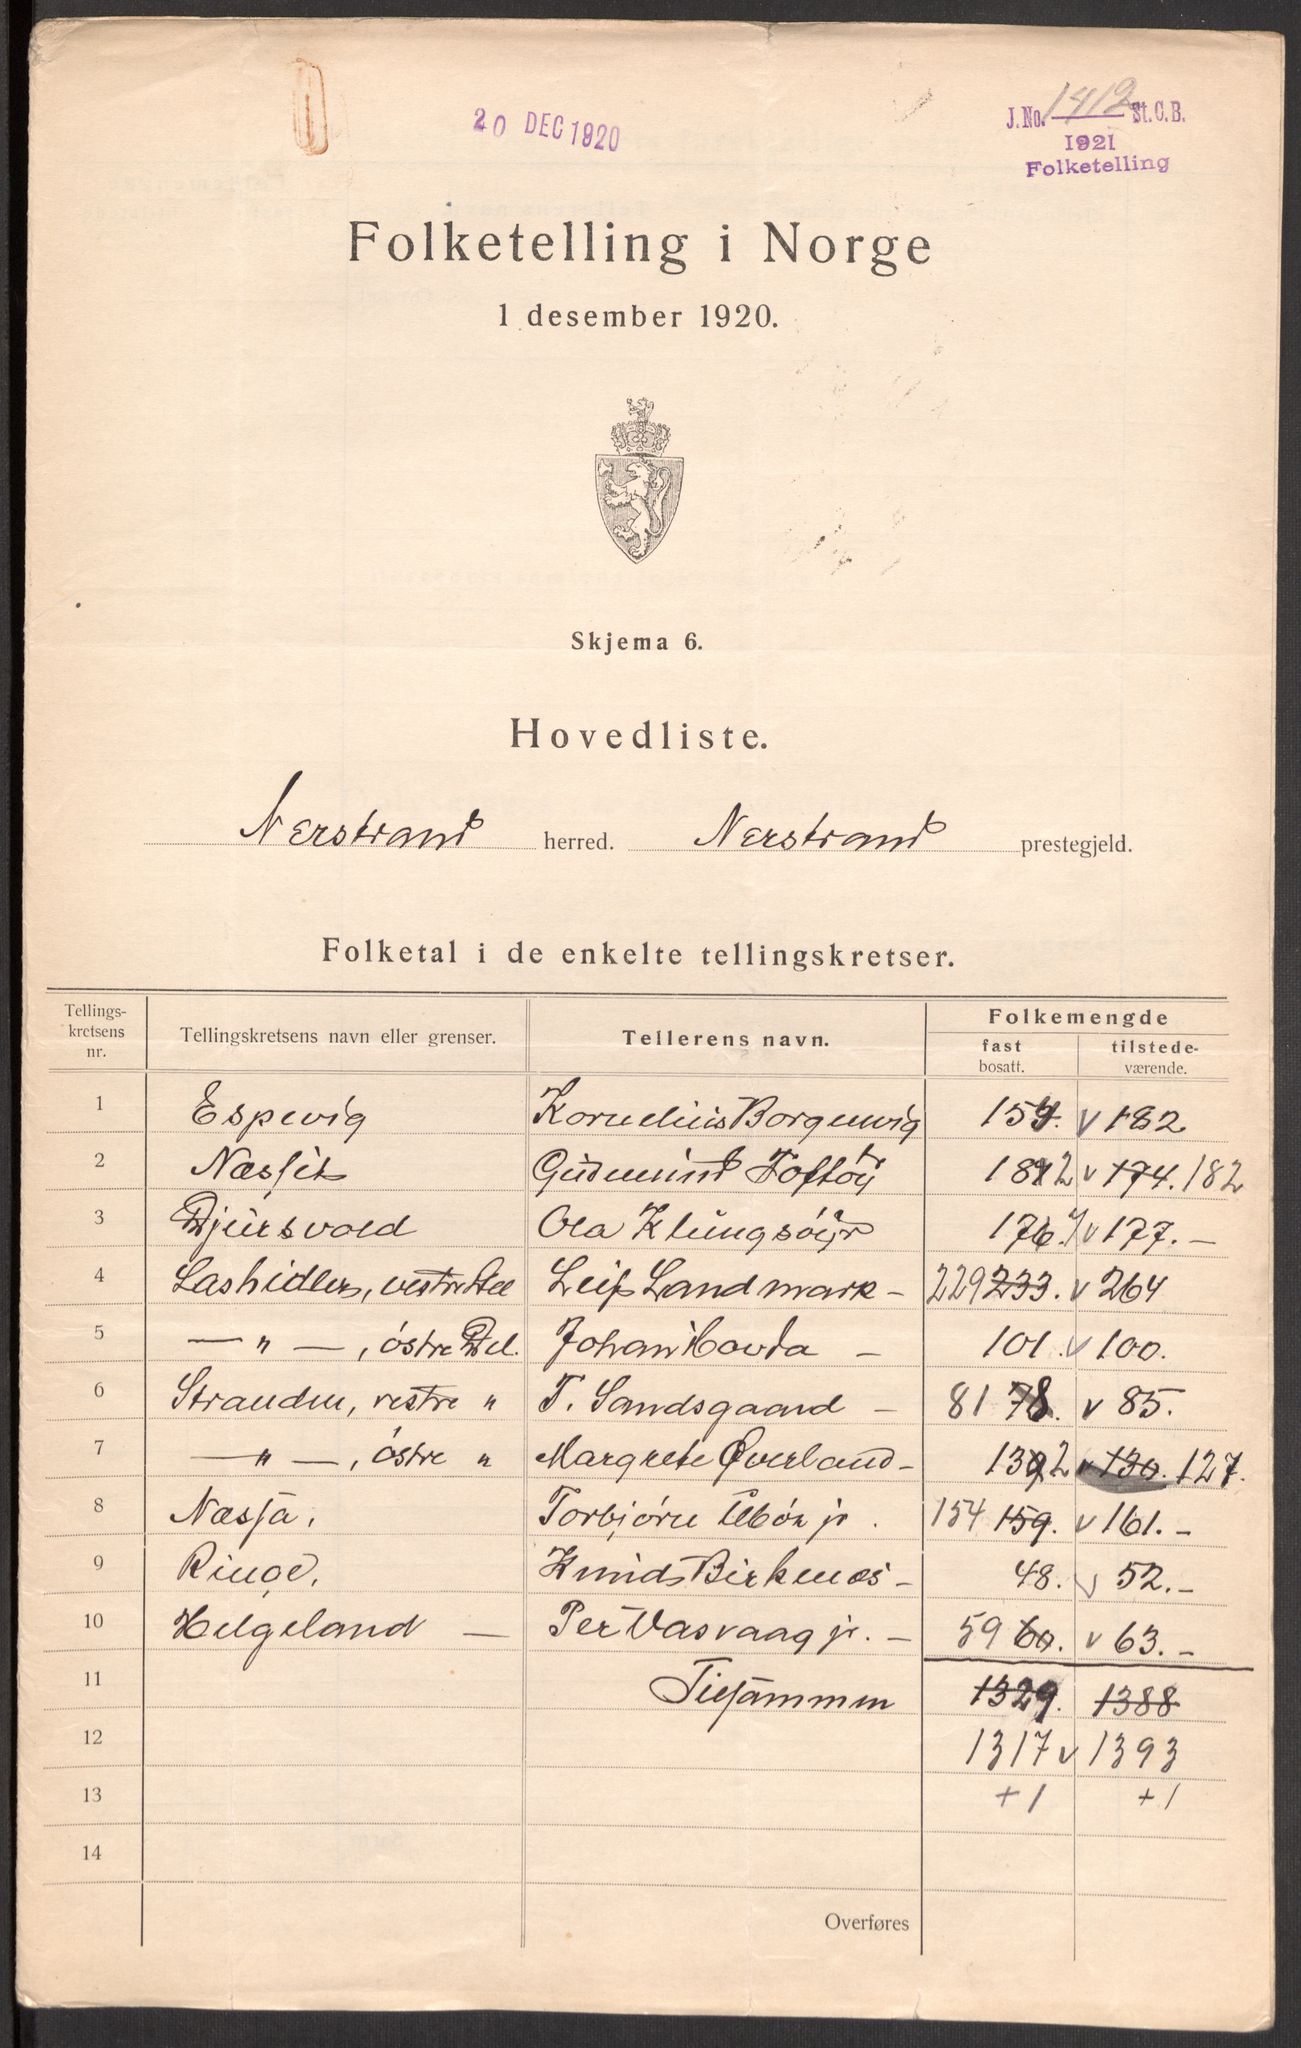 20 DEC 1920
J.No. 1412 St.C.B.
1921
Folketelling
Folketelling i Norge
1 desember 1920.
Skjema 6.
Hovedliste.
Nerstrand herred. Nerstrand prestegjeld.
Folketal i de enkelte tellingskretser.
Tellings-
kretsens
nr.
Tellingskretsens navn eller grenser.
Tellerens navn.
Folkemengde
fast
bosatt.
tilstede-
værende.
1 Espevig Kornelius Borgenvig v 182
2 Gudmund Toftöy 182 v 174. 182
3 Djursvold Ola Klungsöyr 176 v 177. —
4 vestre Del Leif Landmark – 229 233. v 264
5 — " —, östre Del. Johan Hovda – 101. v 100.
6 Stranden, vestre " T. Sandsgaard – 81 78. v 85.
7 — " —, östre " Margrete Øverland – 132 v 130. 127.
8 Næsja. Torbjörn jr. 154 159. v 161. –
9 Ringe. Knud Birkenæs – 48. v 52. –
10 Helgeland — Per Vasvaag jr. – 59 60. v 63. –
11 Tilsammen 1329. 1388
12 1317 v 1393
13 +1 +1
14
Overføres